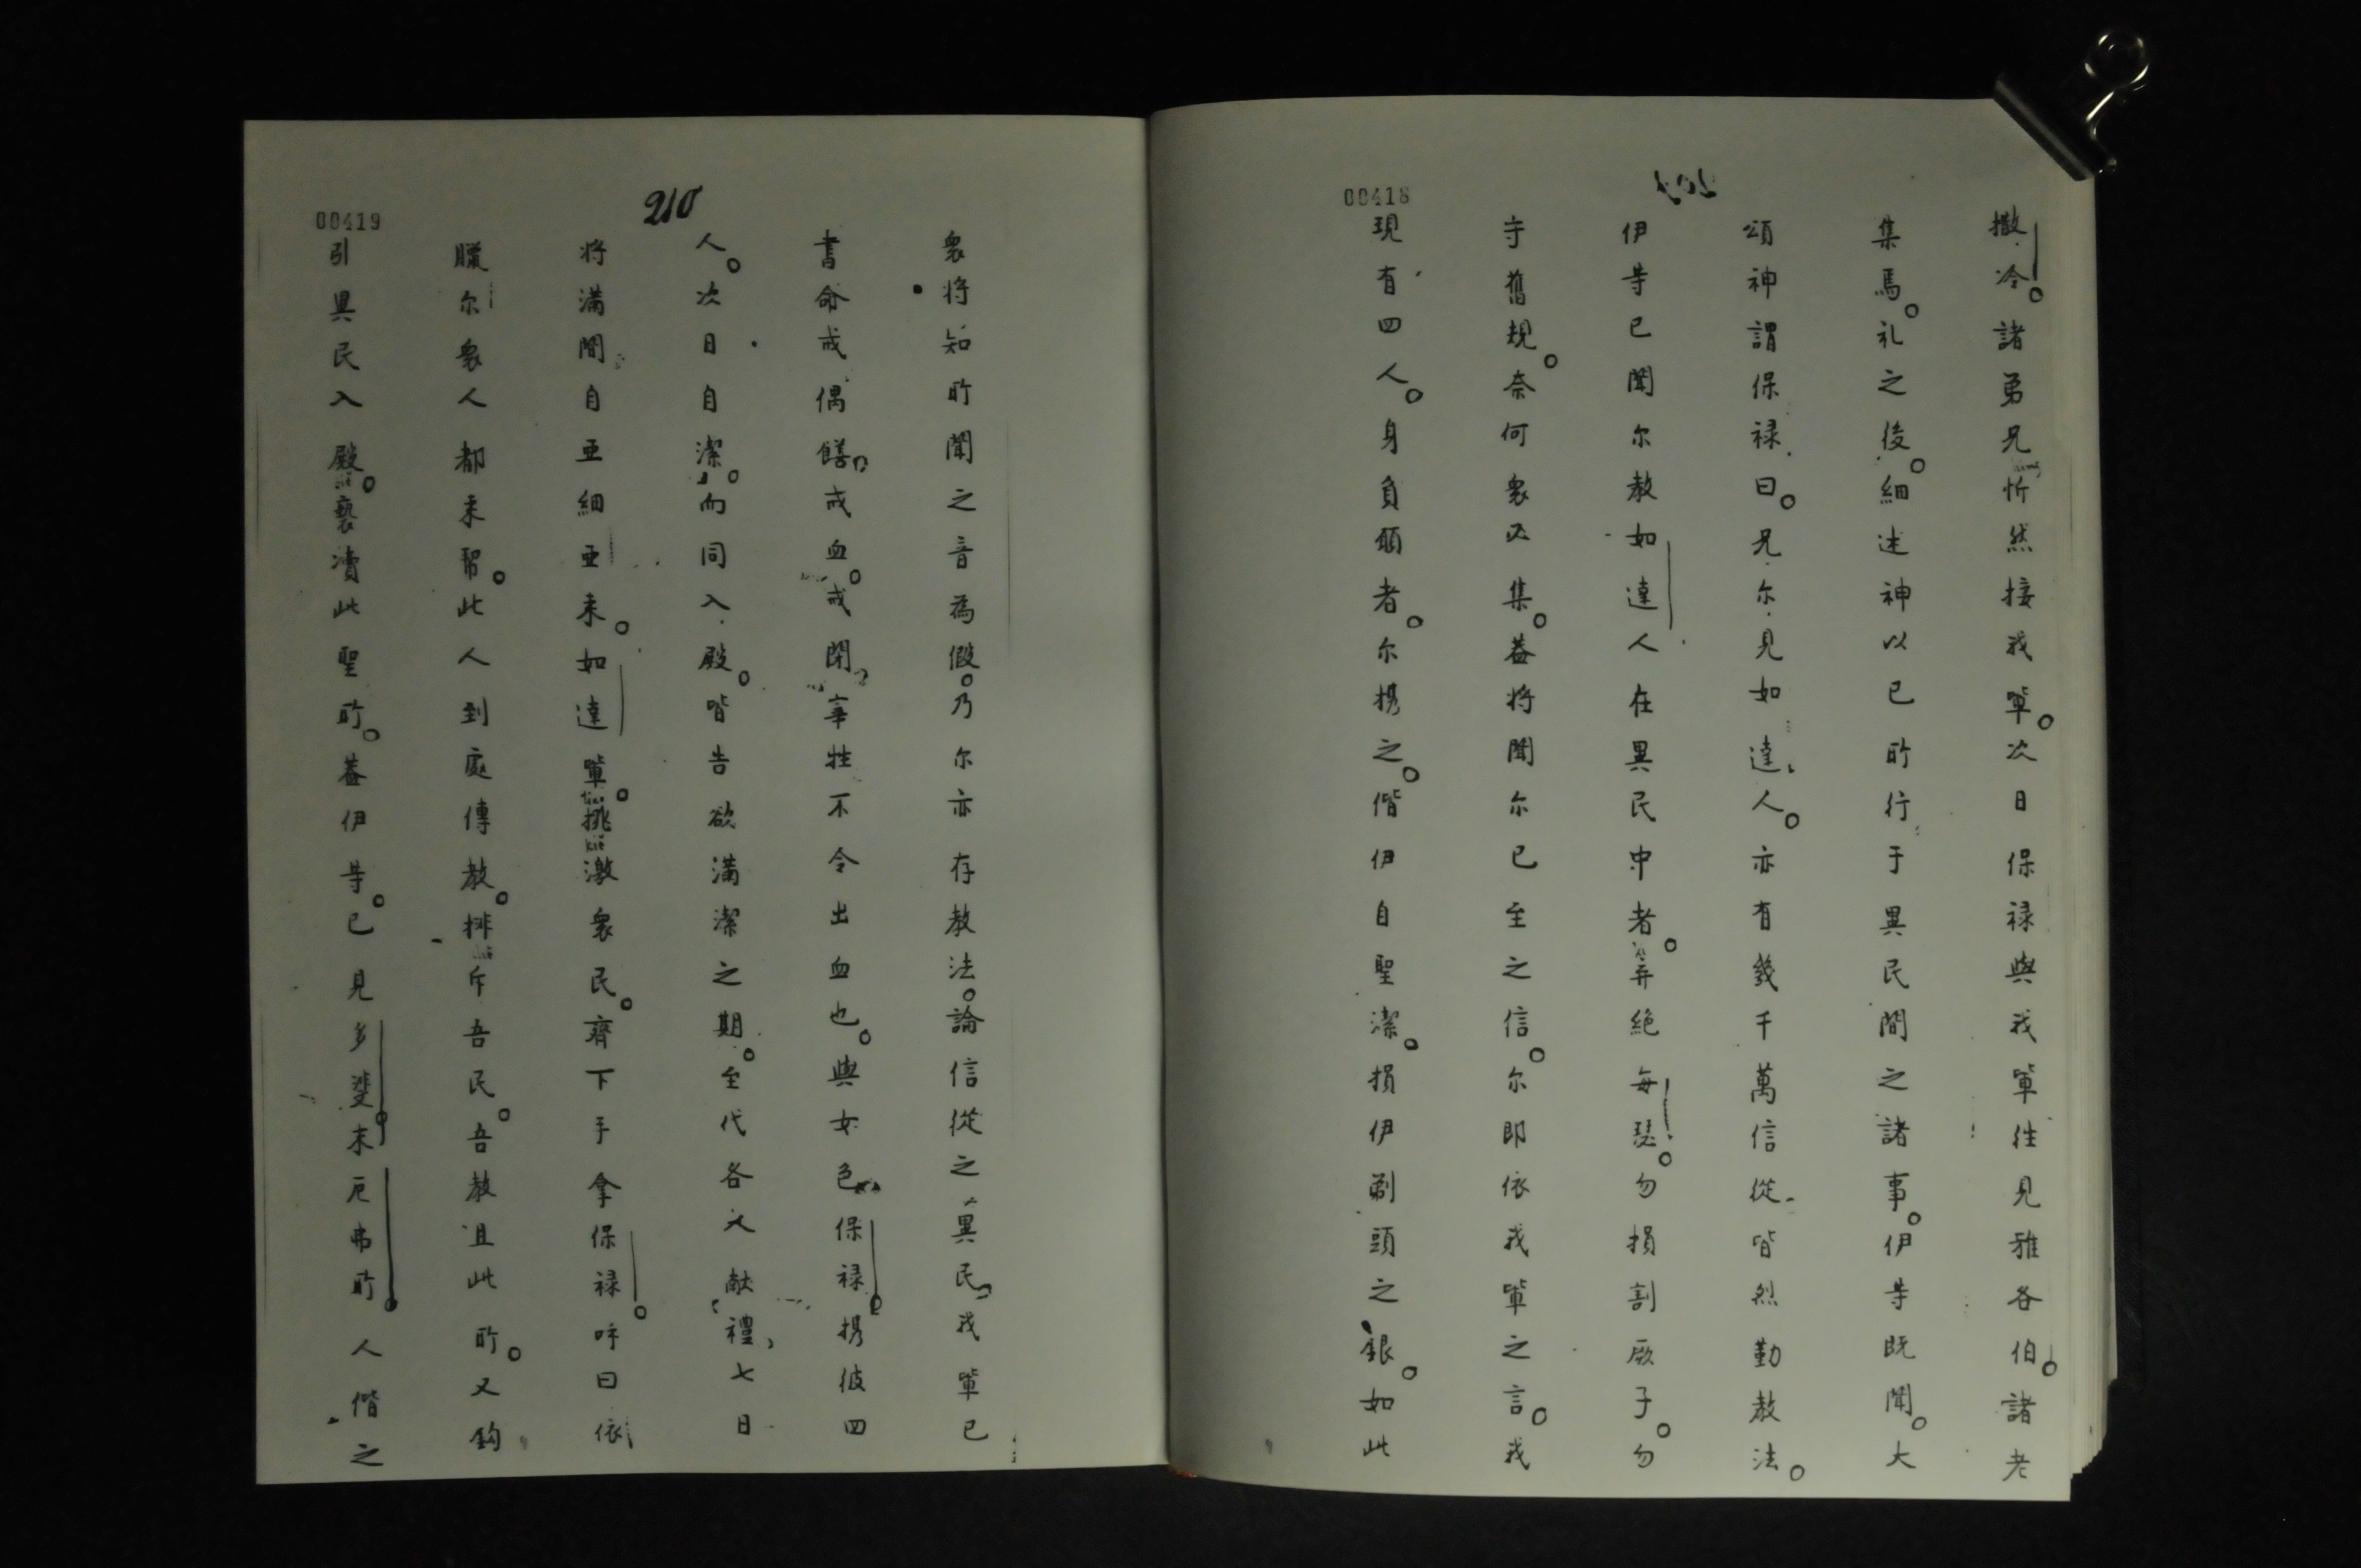 00418
撒冷。諸弟兄忻然接我輩。次日保禄與我輩徃見雅各伯。諸老
集焉。礼之後。細述神以已所行于異民間之諸事。伊等既聞。大
頌神謂保禄曰。兄尔見如達人。亦有幾千萬信從皆烈勤教法。
伊等已聞尔教如達人在異民中者。弃絶每瑟。勿損割厥子。勿
守舊規。奈何衆必集。葢将聞尔已至之信。尔即依我輩之言。我
現有四人。身負願者。尔携之。偕伊自聖潔。損伊剃頭之銀。如此
210
00419
衆将知所聞之音為假。乃尔亦存教法。論信從之異民我輩已
書命戒偶饍戒血。戒閉宰牲不令出血也。與女色保禄携彼四
人。次日自潔。而同入殿。皆告欲满潔之期。至代各人献禮七日
将满間自亜細亜来。如達輩。挑激衆民。齊下手拿保禄。呼曰依
臘尔衆人都来幇。此人到處傳教。排斥吾民。吾教且此所。又鈎
引異民入殿。褻瀆此聖所。葢伊等。已見多斐末厄弗所。人偕之